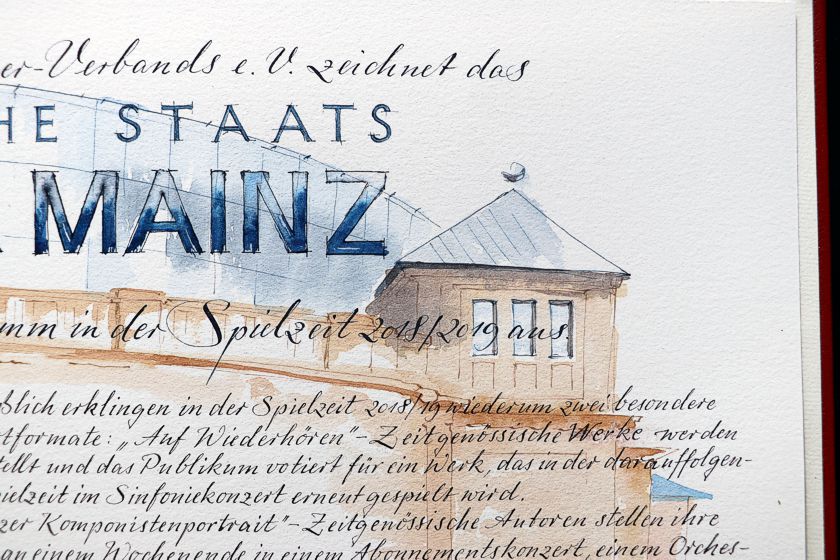 er-Verbands e. V. zeichnet das
HE STAATS
MAINZ
mm in der Spielzeit 2018/2019 aus.
ßlich erklingen in der Spielzeit 2018/19 wiederum zwei besondere
tformate: „Auf Wiederhören"- Zeitgenössische Werke werden
tellt und das Publikum votiert für ein Werk, das in der darauffolgen-
ielzeit im Sinfoniekonzert erneut gespielt wird.
zer Komponistenportrait"- Zeitgenössische Autoren stellen ihre
an einem Wochenende in einem Abonnementskonzert, einem Orches-